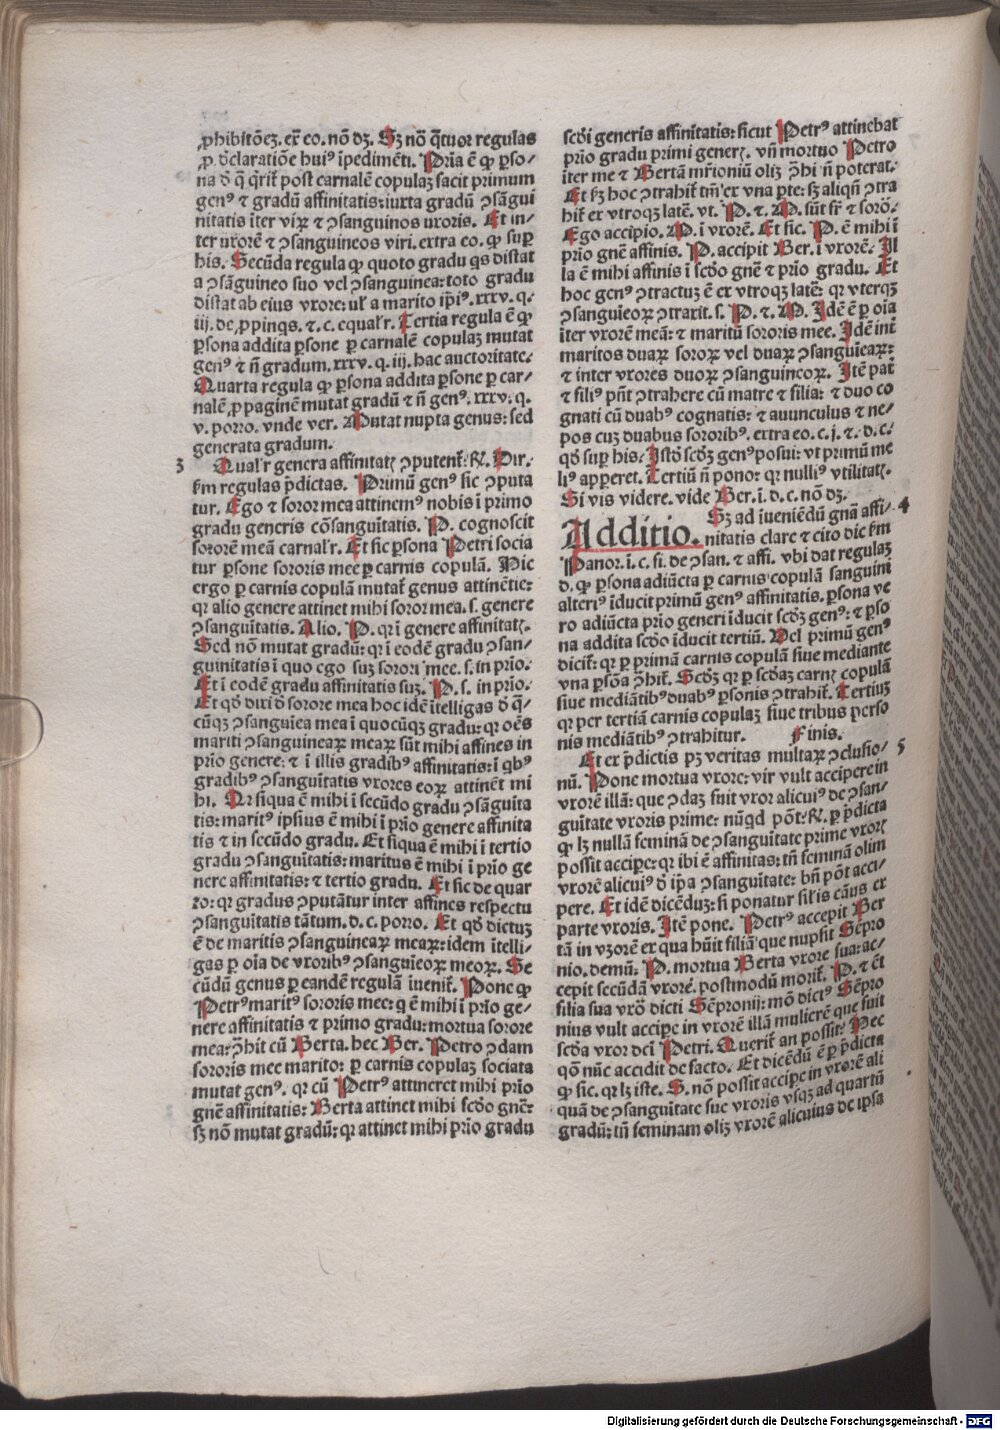 ꝓhibitõeꝫ. ex̃ eo. nõ dꝫ. Sꝫ nõ q̃tuor regulas
ꝓ. d̾claratiõe huiꝰ ĩpedimẽti. Pria ẽ ꝙ ꝑso⸗
na d̾ q̃ q̃rit̃ post carnalẽ copulaꝫ facit primum
genꝰ ⁊ gradũ affinitatis: iuxta gradũ ꝯsãgui
nitatis ĩter virꝝ ⁊ ꝯsanguinos uxoris. Et in⸗
ter uxorẽ ⁊ ꝯsanguineos viri. extra eo. ꝙ suꝑ
his. Secũda regula ꝙ quoto gradu ꝗs distat
a ꝯsãguineo suo vel ꝯsanguinea: toto gradu
distat ab eius vxore: ul̃ a marito ip̃iꝰ. xxxv. q.
iij. de ꝓpinqs. ⁊. c. equal̃r. Tertia regula ẽ ꝙ
ꝑsona addita ꝑsone ꝑ carnalẽ copulaꝫ mutat
genꝰ ⁊ ñ gradum. xxxv. q. iij. hac auctoritate.
Quarta regula ꝙ ꝑsona addita ꝑsone ꝑ car⸗
nalẽ ꝓpaginẽ mutat gradũ ⁊ ñ genꝰ. xxxv. q.
v. porro. vnde ver. Mutat nupta genus: sed
generata gradum.
3 Qual̃r genera affinitatꝭ ꝯputent̃: R̃. Dir.
ẜm regulas p̃dictas. Primũ genꝰ sic ꝯputa
tur. Ego ⁊ soror mea attinemꝰ nobis ĩ primo
gradu generis cõsanguĩtatis. P. cognoscit
sororẽ meã carnal̃r. Et sic ꝑsona Petri socia
tur ꝑsone sororis mee ꝑ carnis copulã. Hic
ergo ꝑ carnis copulã mutat̃ genus attinẽtie:
qꝛ alio genere attinet mihi soror mea. s. genere
ꝯsanguĩtatis. Alio. P. qꝛ ĩ genere affinitatꝭ.
Sed nõ mutat gradũ: qꝛ ĩ eodẽ gradu ꝯsan⸗
guinitatis ĩ quo ego suꝫ sorori mee. s. in prio.
Et ĩ eodẽ gradu affinitatis suꝫ. P. s. in prio.
Et qd̾ dixi d̾ sorore mea hoc idẽ ĩtelligas d̾ q̃⸗
cũqꝫ ꝯsanguiea mea ĩ quocũqꝫ gradu: qꝛ oẽs
mariti ꝯsanguineaꝝ meaꝝ sũt mihi affines in
prio genere: ⁊ ĩ illis gradibꝰ affinitatis: ĩ qbꝰ
gradibꝰ ꝯsanguĩtatis vxores eoꝝ attinẽt mi
hi. Qr siqua ẽ mihi ĩ secũdo gradu ꝯsãguita
tis: maritꝰ ipsius ẽ mihi ĩ prio genere affinita
tis ⁊ in secũdo gradu. Et siqua ẽ mihi ĩ tertio
gradu ꝯsanguĩtatis: maritus ẽ mihi ĩ prio ge
nere affinitatis: ⁊ tertio gradu. Et sic de quar
to: qꝛ gradus ꝯputãtur inter affines respectu
ꝯsanguĩtatis tãtum. d. c. porro. Et qd̾ dictuꝫ
ẽ de maritis ꝯsanguineaꝝ meaꝝ: idem ĩtelli⸗
gas ꝑ oĩa de vxoribꝰ ꝯsanguieoꝝ meoꝝ. Se
cũdũ genus ꝑ eandẽ regulã iuenit̃. Pone ꝙ
Petrꝰ maritꝰ sororis mee: q ẽ mihi ĩ prio ge⸗
nere affinitatis ⁊ primo gradu: mortua sorore
mea: ꝯ̃hit cũ Berta. hec Ber. Petro ꝯdam
sororis mee marito: ꝑ carnis copulaꝫ sociata
mutat genꝰ. qꝛ cũ Petrꝰ attineret mihi prio
gñe affinitatis: Berta attinet mihi scd̾o gñe:
sꝫ nõ mutat gradũ: qꝛ attinet mihi prio gradu
scd̾i generis affinitatis: sicut Petrꝰ attinebat
prio gradu primi generꝭ. vñ mortuo Petro
iter me ⁊ Bertã mr̃ioniũ oliꝫ ꝯ̃hi ñ poterat.
Et ẜꝫ hoc ꝯtrahit̃ tm̃ ex vna ꝑte: sꝫ aliqñ ꝯtra
hit̃ ex vtroqꝫ latẽ. vt. P. ⁊. M. sũt fr̃ ⁊ sorõ.
Ego accipio. M. ĩ vxorẽ. Et sic. P. ẽ mihi ĩ
prio gñe affinis. P. accipit Ber. ĩ vxorẽ. Il
la ẽ mihi affinis ĩ scd̾o gñe ⁊ prio gradu. Et
hoc genꝰ ꝯtractuꝫ ẽ ex vtroqꝫ latẽ: qꝛ vterqꝫ
ꝯsanguieoꝝ ꝯtraxit. s. P. ⁊. M. Idẽ ẽ ꝑ oĩa
iter vxorẽ meã: ⁊ maritũ sororis mee. Idẽ int̃
maritos duaꝝ soroꝝ vel duaꝝ ꝯsanguieaꝝ:
⁊ inter vxores duoꝝ ꝯsanguineoꝝ. Itẽ pat̃
⁊ filiꝰ pñt ꝯtrahere cũ matre ⁊ filia: ⁊ duo co
gnati cũ duabꝰ cognatis: ⁊ auunculus ⁊ ne⸗
pos cuꝫ duabus sororibꝰ. extra eo. c. j. ⁊. d. c.
qd̾ suꝑ his. Istd̾ scd̾ꝫ genꝰ posui: vt primũ me
liꝰ apꝑeret. Tertiũ ñ pono: qꝛ nulliꝰ vtilitatꝭ.
Si vis videre. vide Ber. ĩ. d. c. nõ dꝫ.
Additio. Sꝫ ad iueniẽdũ gñã affi⸗ 4
nitatis clare ⁊ cito dic ẜm
Panor. ĩ. c. si. de ꝯsan. ⁊ affi. vbi dat regulaꝫ
d. ꝙ ꝑsona adiũcta ꝑ carnis copulã sanguini
alteriꝰ ĩducit primũ genꝰ affinitatis. ꝑsona ve
ro adiũcta prio generi ĩducit scd̾ꝫ genꝰ: ⁊ ꝑso
na addita scd̾o ĩducit tertiũ. Vel primũ genꝰ
dicit̃: qꝛ ꝑ primã carnis copulã siue mediante
vna ꝑsõa ꝯ̃hit̃. Scd̾ꝫ qꝛ ꝑ scd̾aꝫ carnꝭ copulã
siue mediãtibꝰ duabꝰ ꝑsonis ꝯtrahit̃. Tertiuꝫ
qꝛ per tertiã carnis copulaꝫ siue tribus ꝑerso
nis mediãtibꝰ ꝯtrahitur. Finis.
Et ex p̃dictis pꝫ veritas multaꝝ ꝯclusio⸗ 5
nũ. Pone mortua vxore: vir vult accipere in
vxorẽ illã: que ꝯdaꝫ fuit vxor alicuiꝰ de ꝯsan⸗
guĩtate vxoris prime: nũqd põt: R̃. ꝑ p̃dicta
ꝙ lꝫ nullã feminã de ꝯsanguĩtate prime vxorꝭ
possit accipe: qꝛ ibi ẽ affinitas: tñ feminã olim
vxorẽ alicuiꝰ d̾ ip̃a ꝯsanguĩtate: bñ põt acci⸗
pere. Et idẽ dicẽduꝫ: si ponatur silis cãus ex
parte vxoris. Itẽ pone. Petrꝰ accepit Ber
tã in vxorẽ ex qua hũit filiã que nupsit Sẽpro
nio. demũ. P. mortua Berta vxore sua: ac⸗
cepit secũdã vxorẽ. postmodũ morit̃. P. ⁊ ẽt
filia sua vxõ dicti Sẽpronij: mõ dictꝰ Sẽpro
nius vult accipe in vxorẽ illã mulierẽ que fuit
scd̾a vxor dc̃i Petri. Querit̃ an possit: Nec
qõ nũc accidit de facto. Et dicẽdũ ẽ ꝑ p̃dicta
ꝙ sic. qꝛ lꝫ iste. S. nõ possit accipe in vxorẽ ali
quã de ꝯsanguĩtate sue vxoris vsqꝫ ad quartũ
gradũ: tñ feminam oliꝫ vxorẽ alicuius de ipsa
Digitalisierung gefördert durch die Deutsche Forschungsgemeinschaft - DFG